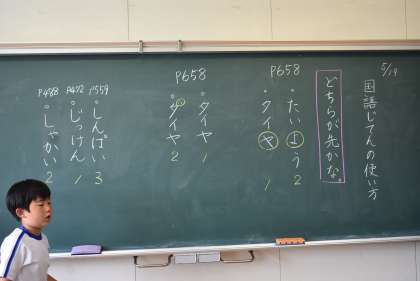 5/19
国語じてんの使い方
どちらが先かな
P658
・たいよう 2
・タイヤ 1
P658
・タイヤ 1
・ダイヤ 2
P559
・しんぱい 3
P472
・じっけん 1
P488
・しゃかい 2